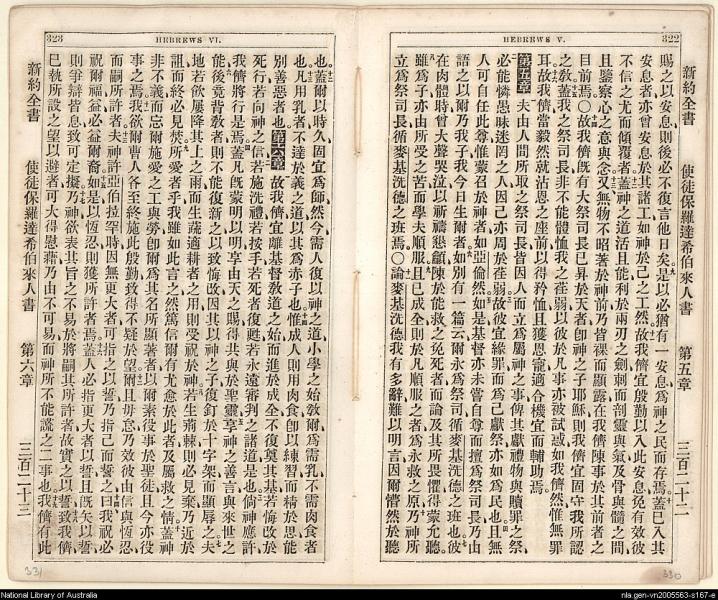 322
HEBREWS V.
新約全書 使徒保羅達希伯來人書 第五章 三百二十二
賜之以安息則後必不復言他日矣是以必猶有一安息爲神之民而存焉蓋巳入其
安息者亦曾安息於其諸工如神於己之工然故我儕宜殷勤以入此安息免有效彼
不信之尤而傾覆者蓋神之道活且能利於兩刃之劍刺而剖靈與氣及骨與髓之間
且鑒察心之意與念又無物不昭著於神前乃皆裸而顯露在我儕陳事於其前者之
目前焉○故我儕既有大祭司長巳昇於天者卽神之子耶穌則我儕宜固守我所認
之敎蓋我之祭司長非不能體恤我之荏弱以彼於凡事亦被試惑如我儕然惟無罪
耳故我儕當毅然就沾恩之座前以得矜恤且獲恩寵適合機宜而輔助焉
第五章 夫由人間所取之祭司長皆因人而立爲屬神之事俾其獻禮物與贖罪之祭
必能憐愚昧迷罔之人因己亦周於荏弱故彼宜緣罪而爲己獻祭亦如爲民也且無
人可自任此尊惟蒙召於神者如亞倫然如是基督亦未嘗自尊而擅爲祭司長乃由
語之以爾乃我子我今日生爾者如別有一篇云爾永爲祭司循麥基洗德之班也彼
在肉體時曾大聲哭泣以祈禱懇籲陳於能救之免死者而論及其所畏懼得蒙允聽
雖爲子亦由所受之苦而學夫順服且巳成全則於凡順服之者爲永救之原乃神所
立爲祭司長循麥基洗德之班焉○論麥基洗德我有多辭難以明言因爾懵然於聽
330
323
HEBREWS VI.
也蓋爾以時久固宜爲師然今需人復以神之道小學之始敎爾爲需乳不需肉食者
也凡用乳者不達於義之道以其爲赤子也惟成人則用肉食卽以練習而精於思能
別善惡者也 第六章 故我儕宜離基督敎道之始而進於成全不復奠其基若悔改於
死行若向神之信若施洗禮若按手若死者復甦若永遠審判之諸道是也倘神應許
我儕將行是焉蓋凡既蒙明以明享由天之賜得其與於聖靈享神之善言與來世之
能後竟背敎者則不能復新之以致悔改因其以神之子復釘於十字架而顯辱之夫
地若飲屢降其上之雨而生蔬適耕者之用則受祝於神若生荊棘則必見棄乃近於
詛而終必見焚所愛者乎我雖如此言之然篤信爾有尤愈於此者及屬救之情蓋神
非不義而忘爾施愛之工與勞卽爾爲其名所顯著者以爾素役事於聖徒且今亦役
事之焉我欲爾曹人各至終施此殷勤致得不疑於望爾且毋怠乃效彼由信與恆忍
而嗣所許者夫神許亞伯拉罕時因無更大者可指之以誓乃指己而誓之曰我祝必
祝爾福益必益爾裔如是以恆忍則獲所許者焉蓋人必指更大者以誓且既矢以誓
則爭辯皆息致可定擬乃神欲表其旨之不易於將嗣其所許者故實之以誓致我儕
巳執所設之望以避者可大得慰藉乃由不可易而神所不能謊之二事也我儕有此
新約全書 使徒保羅達希伯來人書 第六章 三百二十三
331
National Library of Australia
nla.gen-vn2005563-s167-e